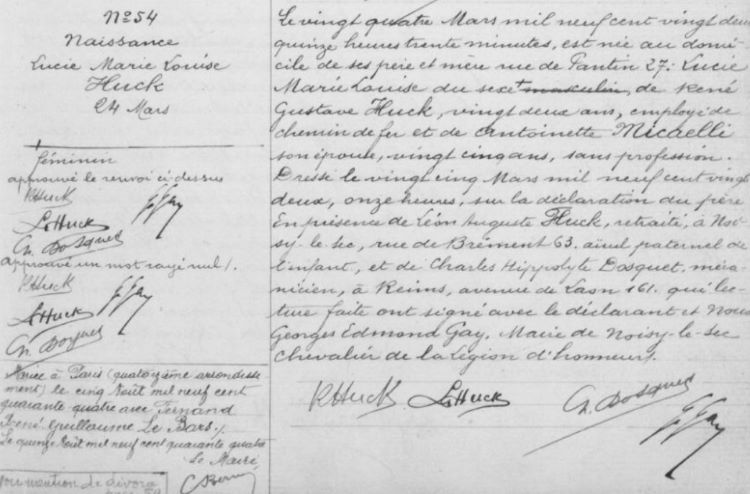 No 54
Naissance
Lucie Marie Louise
Huck
24 Mars
féminin
approuvé le renvoi ci-dessus
RHuck
LHuck
G Gay
Ch. Dosquet
approuvé un mot rayé nul.
RHuck
LHuck
G Gay
Ch. Dosquet
Mariée à Paris (quatorzième arrondisse
ment) le cinq Août mil neuf cent
quarante quatre avec Fernand
René Guillaume Le Bars./.
Le quinze Août mil neuf cent quarante quatre
Le Maire,
mention de divorce
Le vingt quatre Mars mil neuf cent vingt deux
quinze heures trente minutes, est née au domi-
cile de ses père et mère rue de Pantin 27: Lucie
Marie Louise du sexe + masculin, de René
Gustave Huck, vingt deux ans, employé de
chemin de fer et de Antoinette Micaelli
son épouse, vingt cinq ans, sans profession.
Dressé le vingt cinq Mars mil neuf cent vingt
deux, onze heures, sur la déclaration du père
En présence de Léon Auguste Huck, retraité, à Noi-
sy-le-Sec, rue de Brément 63. aïeul paternel de
l'enfant, et de Charles Hippolyte Dosquet, méca-
nicien, à Reims, avenue de Laon 161. qui lec-
ture faite ont signé avec le déclarant et Nous
Georges Edmond Gay, Maire de Noisy-le-Sec
Chevalier de la légion d'honneur./.
RHuck LHuck Ch. Dosquet G Gay